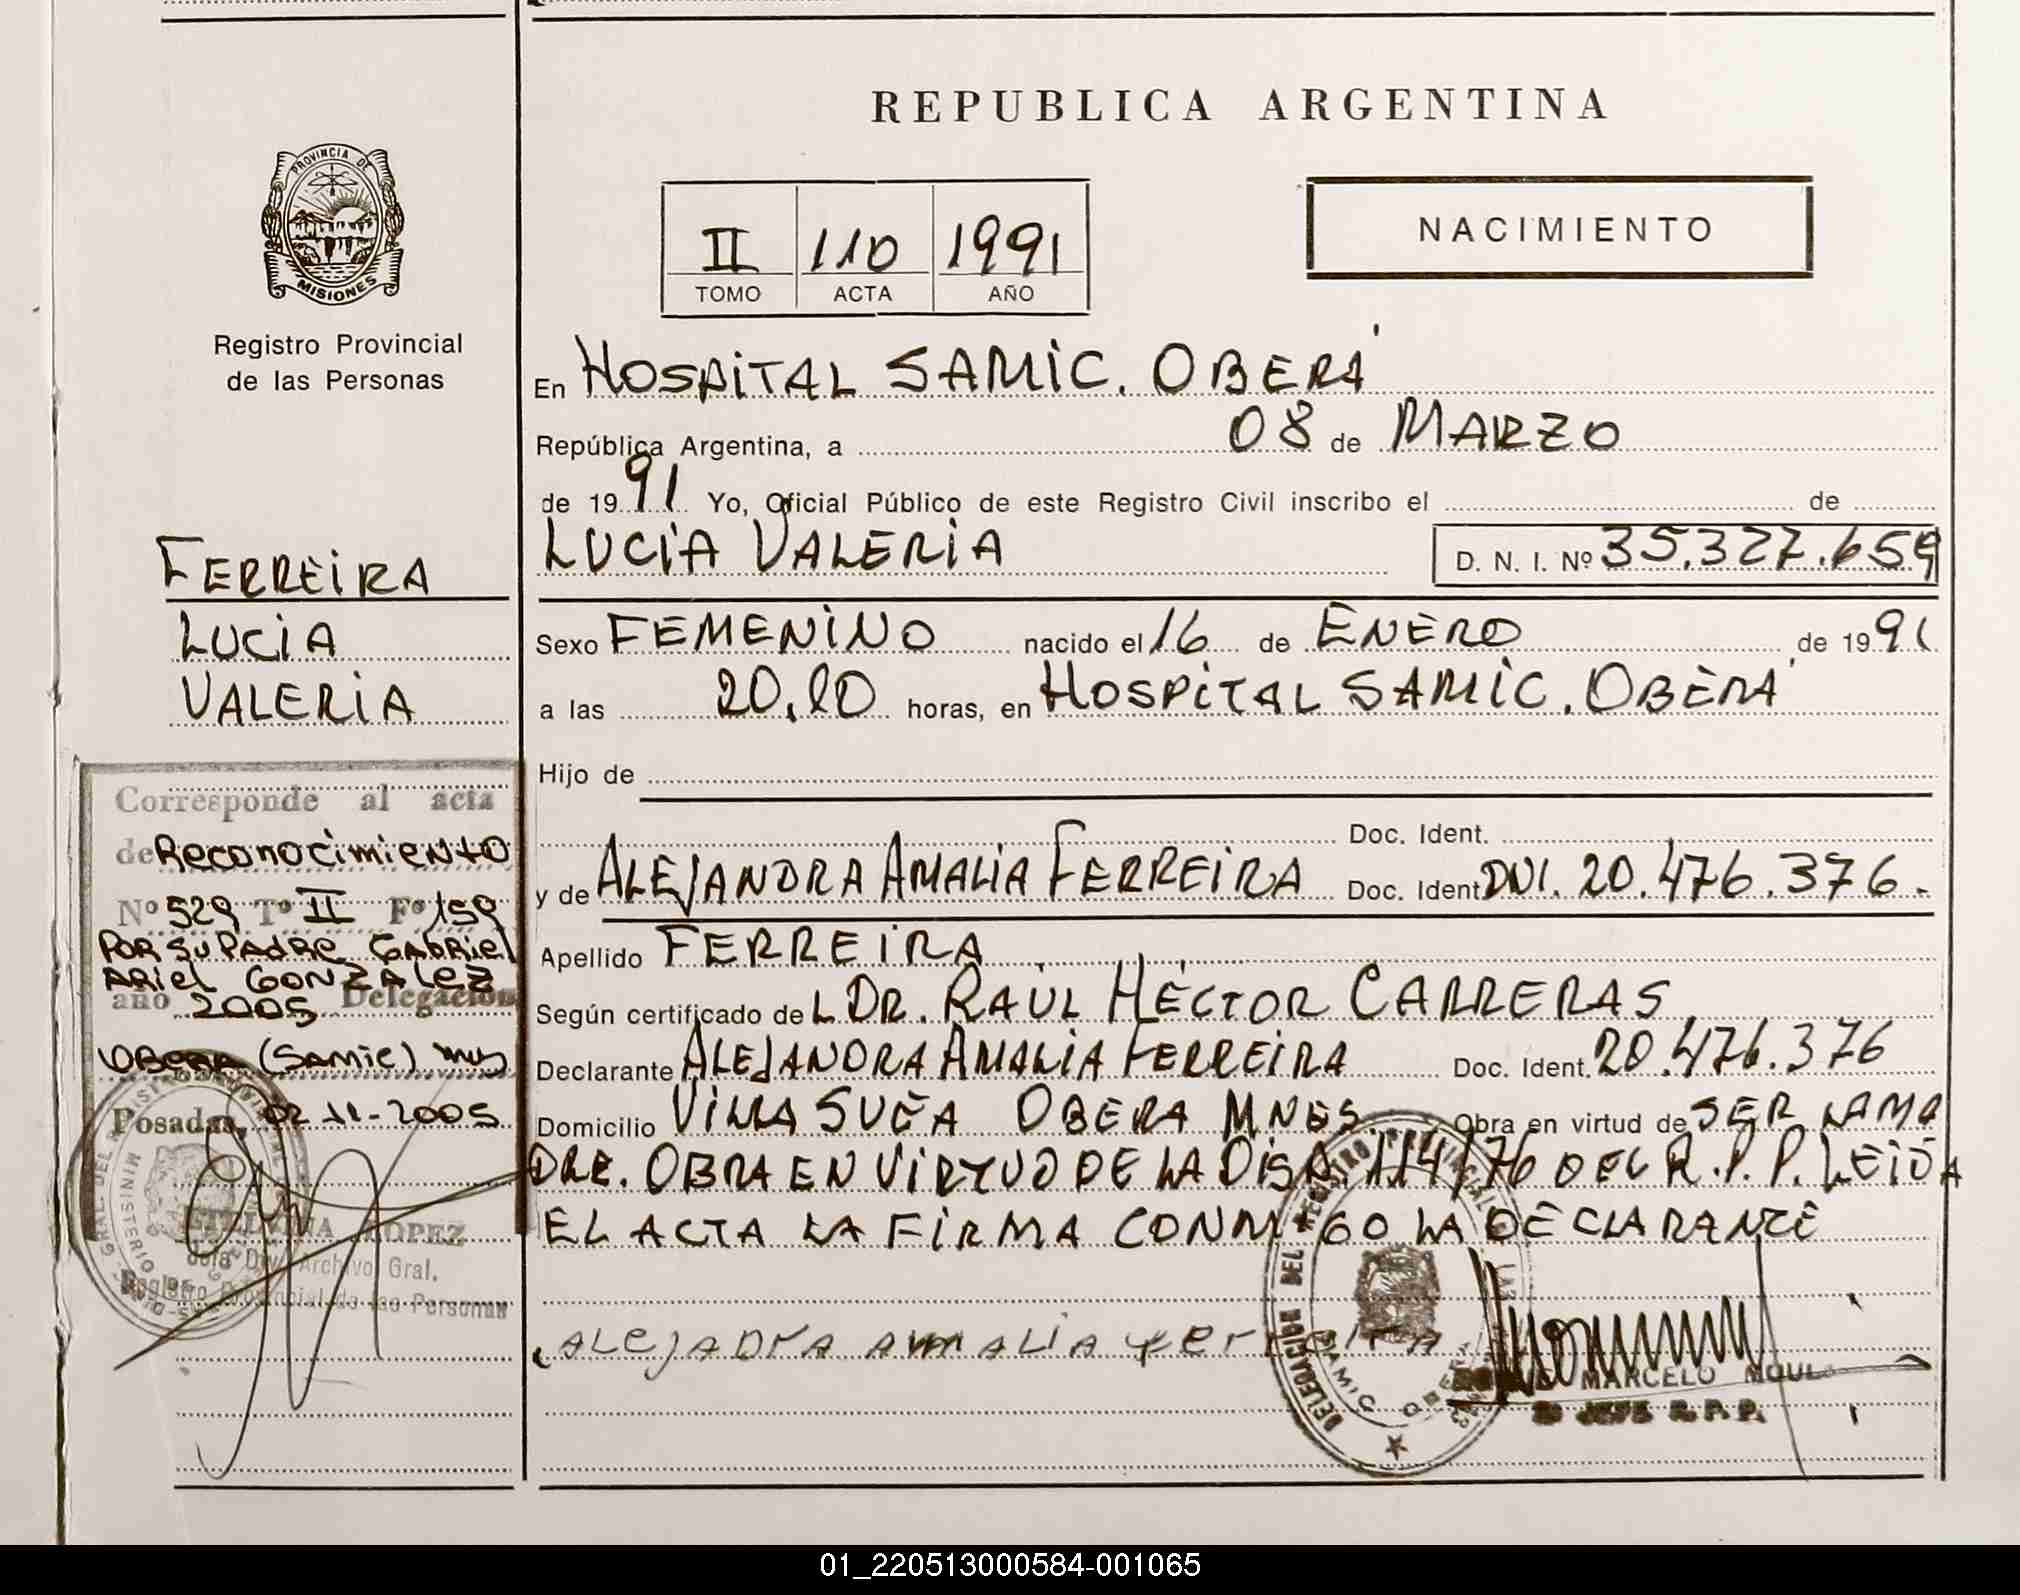 REPUBLICA ARGENTINA
PROVINCIA DE
MISIONES
Registro Provincial
de las Personas
II 110 1991
TOMO ACTA AÑO
NACIMIENTO
En HOSPITAL SAMIC. OBERÁ
República Argentina, a 08 de MARZO
de 1991 Yo, Oficial Público de este Registro Civil inscribo el de
LUCIA VALERIA D. N. I. Nº 35.327.659
Sexo FEMENINO nacido el 16 de ENERO de 1991
a las 20,10 horas, en HOSPITAL SAMIC. OBERÁ
Hijo de
Doc. Ident.
y de ALEJANDRA AMALIA FERREIRA Doc. Ident. DNI. 20.476.376.
Apellido FERREIRA
Según certificado de L DR. RAÚL HÉCTOR CARRERAS
Declarante ALEJANDRA AMALIA FERREIRA Doc. Ident. 20.476.376
Domicilio VILLA SVEA OBERA MNES. Obra en virtud de SER LA MA
DRE. OBRA EN VIRTUD DE LA DISP. 114/76 DEL R.P.P. LEIDA
EL ACTA LA FIRMA CONMIGO LA DECLARANTE
ALEJADRA AMALIA FERREIRA
MARCELO
JEFE R.P.P.
FERREIRA
LUCIA
VALERIA
Corresponde al acta
de Reconocimiento
Nº 529 Tº II Fº 159
POR SU PADRE GABRIEL
ARIEL GONZALEZ
año 2005 Delegación
OBERA (SAMIC) MNS
Posadas, 02-11-2005
LOPEZ
Archivo Gral.
Registro Provincial de las Personas
01_220513000584-001065